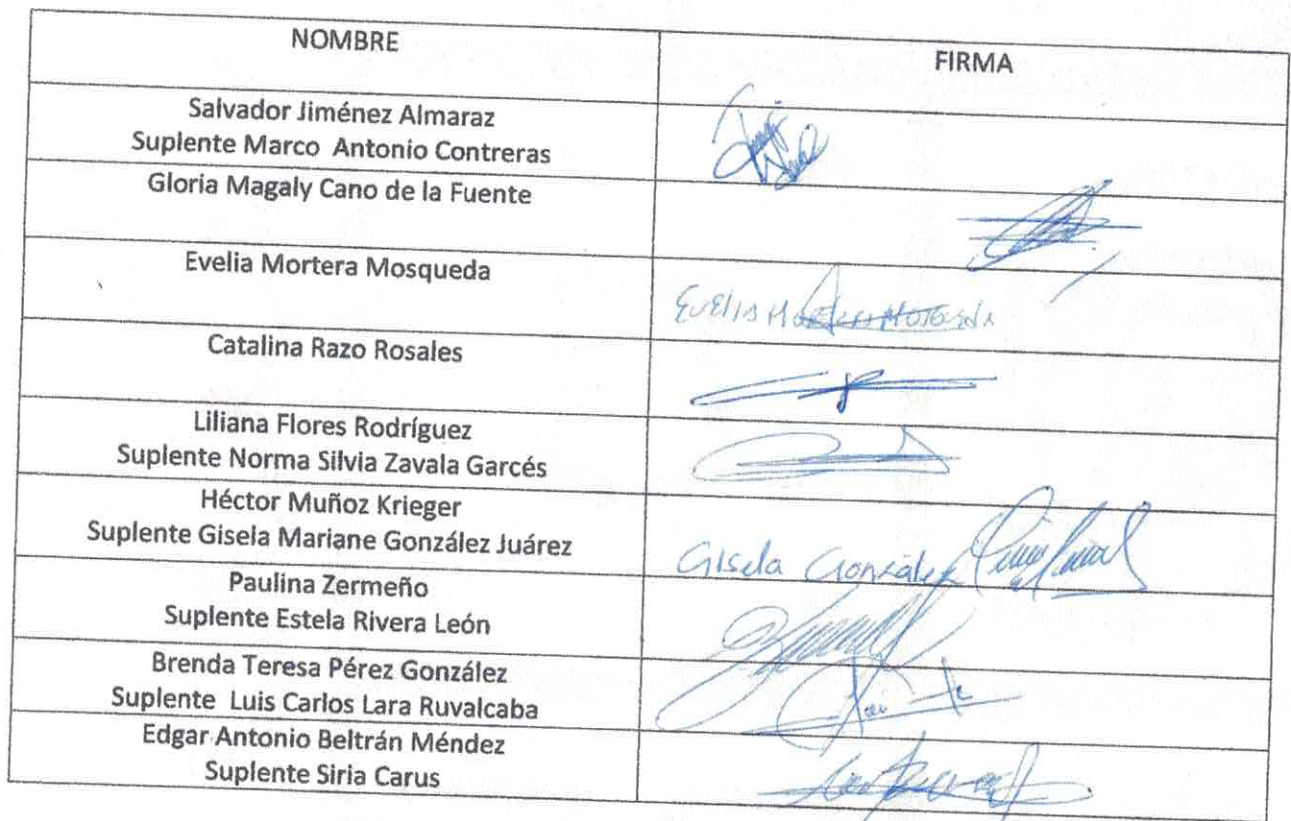 NOMBRE
FIRMA
Salvador Jiménez Almaraz
Suplente Marco Antonio Contreras
Gloria Magaly Cano de la Fuente
Evelia Mortera Mosqueda
Catalina Razo Rosales
Liliana Flores Rodríguez
Suplente Norma Silvia Zavala Garcés
Héctor Muñoz Krieger
Suplente Gisela Mariane González Juárez
Gisela González
Paulina Zermeño
Suplente Estela Rivera León
Brenda Teresa Pérez González
Suplente Luis Carlos Lara Ruvalcaba
Edgar Antonio Beltrán Méndez
Suplente Siria Carus